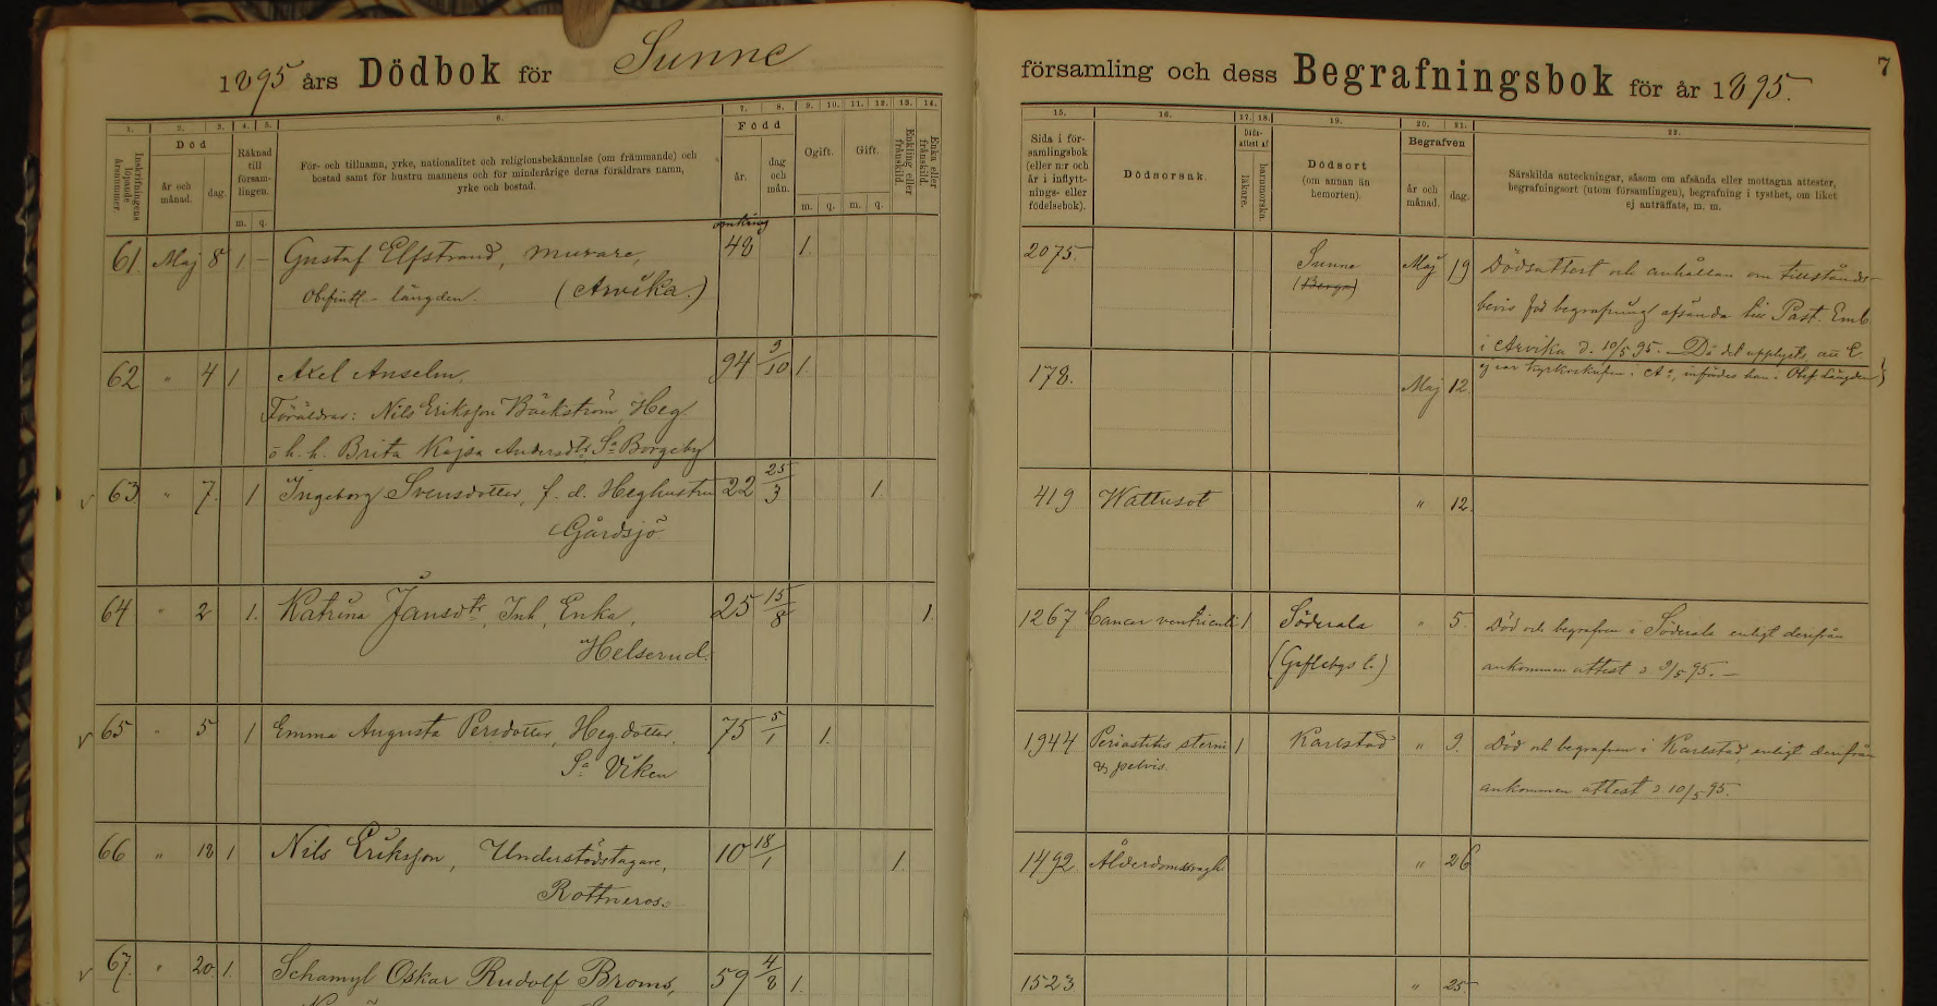 1895 års Dödbok för Sunne
församling och dess Begrafningsbok för år 1895.
7
1. 2. 3. 4. 5. 6. 7. 8. 9. 10. 11. 12. 13. 14.
Inskrifningens löpande årsnummer.
Död
år och månad.
dag.
Räknad till församlingen.
m. q.
För- och tillnamn, yrke, nationalitet och religionsbekännelse (om främmande) och
bostad samt för hustru mannens och för minderårige deras föräldrars namn,
yrke och bostad.
Född
år.
dag och mån.
Ogift.
m. q.
Gift.
m. q.
Enkling eller frånskild.
Enka eller frånskild.
15. 16. 17. 18. 19. 20. 21. 22.
Sida i för-
samlingsbok
(eller n:r och
år i inflytt-
nings- eller
födelsebok).
Dödsorsak.
Döds-
attest af
läkare.
barnmorska.
Dödsort
(om annan än
hemorten).
Begrafven
år och månad.
dag.
Särskilda anteckningar, såsom om afsända eller mottagna attester,
begrafningsort (utom församlingen), begrafning i tysthet, om liket
ej anträffats, m. m.
omkring
61. Maj 8 1 – Gustaf Elfstrand, murare, 48 1.
Obefintl. – längden. (Arvika.)
62 " 4 1 Axel Anselm. 94 9/10 1.
Föräldrar: Nils Eriksson Bäckström, Heg.
o h. h. Brita Kajsa Andersdtr Sa Borgeby
63 " 7. 1 Ingeborg Svensdotter, f. d. Heghustru 22 25/3 1.
Gårdsjö.
64 " 2 1. Katrina Jansdtr, Inh, Enka, 25 15/8 1.
Helserud.
65 " 5 1 Emma Augusta Persdotter, Heg.dotter. 75 5/1 1.
Sa Viken
66 " 18 1 Nils Eriksson, Understödstagare, 10 18/1 1.
Rottneros.
67. " 20. 1. Schamyl Oskar Rudolf Broms, 59 4/8 1.
2075. Sunne Maj 19 Dödsattest och anhållan om tillstånds-
(Berga) bevis för begrafning afsända till Past. Emb.
i Arvika d. 10/5 95. – Då det upplysts, att E.
ej var kyrkoskrifven i Aa, infördes han i Obef. Längden)
178. Maj 12.
419 Wattusot " 12.
1267 Cancer ventriculi 1 Söderala " 5. Död och begrafven i Söderala enligt derifrån
(Gefleborgs l.) ankommen attest d 9/5 95. –
1944 Periostitis sterni 1 Karlstad " 9. Död och begrafven i Karlstad, enligt derifrån
& pelvis. ankommen attest d 10/5 95.
1492. Ålderdomssvagh. " 26
1523 " 25.